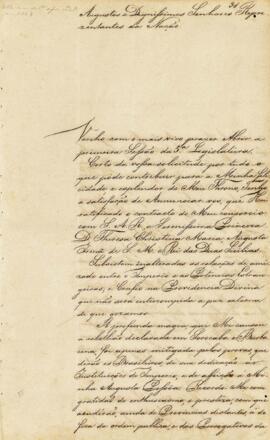 Augustos e Dignissimos Senhores Repre
zentantes da Nação
Venho com o mais vivo prazer Abrir a
primeira Sessão da 5.ª Legislatura.
Certo da vossa solicitude por tudo o
que póde contribuir para a Minha feli
cidade e esplendor do Meu Throno, Tenho
a satisfação de Annunciar vos, que Foi
ratificado o contracto de Meu consorcio
com S. A. R. a Serenissima Princeza
D. Thereza Christina Maria, Augusta
Irmã de S. M. o Rei das Duas Sicilias.
Subsistem inalteradas as relações de ami
zade entre o Imperio e as Potencias Estran
geiras, e Confio na Providencia Divina
que não será interrompida a paz externa
de que gozamos.
A profunda magoa, que Me causou
a rebellião declarada em Sorocaba e Barba
cena, foi apenas mitigada pelas provas que
derão os Brasileiros de sua dedicação ás
Instituições do Imperio, e de affeição á Mi
nha Augusta Pessoa. Recordo Me com
gratidão do enthusiasmo, e presteza, com que
acudirão, ainda de Provincias distantes, á de
feza da ordem publica, e das Prerogativas da